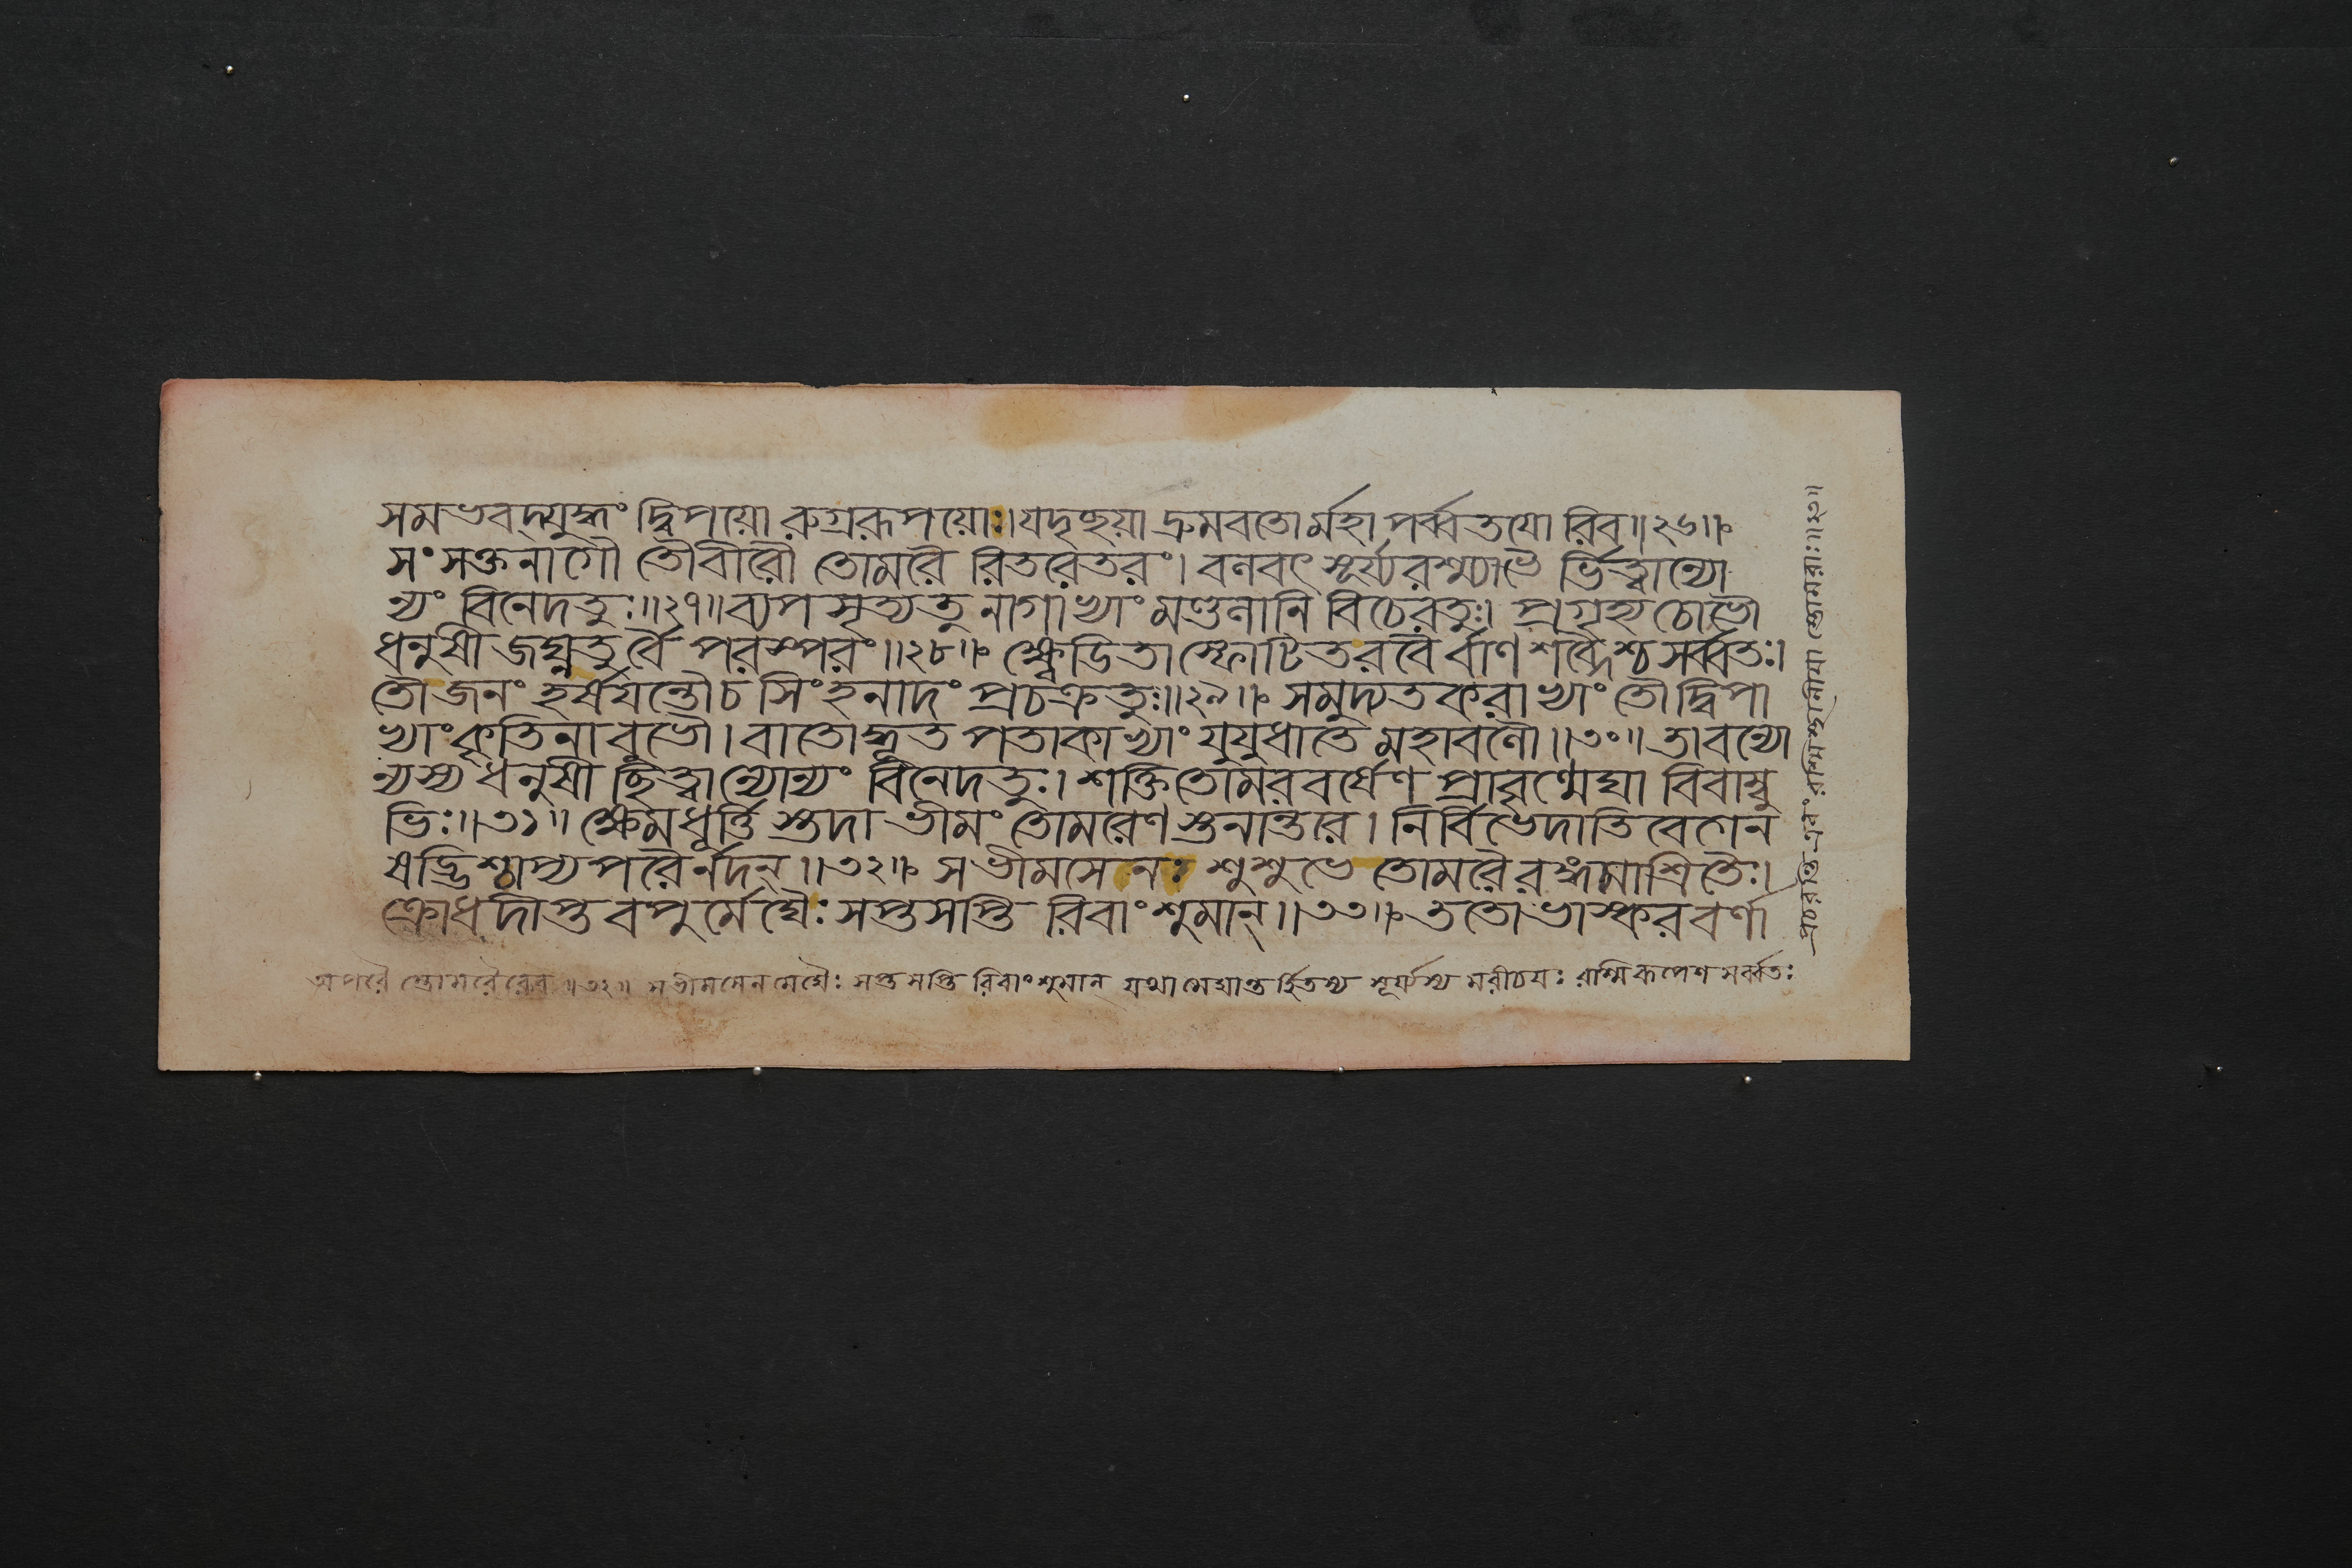 সমভবদ্যুদ্ধং দ্বিপয়ো রুগ্ররূপয়োঃ। যদৃচ্ছয়া দ্রুমবতো র্মহা পর্ব্বতযো রিব॥২৬॥
সংসক্তনাগৌ তৌ বীরৌ তোমরৈ রিতরেতরং। বলবৎ সূর্য্যরশ্ম্যাভৈ র্ভিত্ত্বান্যো
ন্যং বিনেদতুঃ॥২৭॥ ব্যপসৃত্য তু নাগাভ্যাং মণ্ডলানি বিচেরতুঃ। প্রগৃহ্য চোভৌ
ধনুষী জঘ্নতু র্বৈ পরস্পরং॥২৮॥ ক্ষ্বেডিতাস্ফোটিতরবৈ র্বাণশব্দৈশ্চ সর্ব্বতঃ।
তৌ জনং হর্ষযন্তৌ চ সিংহনাদং প্রচক্রতুঃ॥২৯॥ সমুদ্যতকরাভ্যাং তৌ দ্বিপা
ভ্যাং কৃতিনা বুভৌ। বাতোদ্ধূত পতাকাভ্যাং যুযুধাতে মহাবলৌ॥৩০॥ তাবন্যো
ন্যস্য ধনুষী ছিত্ত্বান্যোন্যং বিনেদতুঃ। শক্তিতোমরবর্ষেণ প্রাবৃণ্মেঘা বিবাম্বু
ভিঃ॥৩১॥ ক্ষেমধূর্ত্তি স্তদা ভীমং তোমরেণ স্তনান্তরে। নির্বিভেদাতিবেগেন
ষড্ভিশ্চাপ্য পরৈর্নদন্॥৩২॥ স ভীমসেনঃ শুশুভে তোমরৈ রঙ্গমাশ্রিতৈঃ।
ক্রোধদীপ্তবপু র্মেঘৈঃ সপ্তসপ্তি রিবাংশুমান্॥৩৩॥ ততো ভাস্করবর্ণা
অপরৈ স্তোমরৈরেব॥৩২॥ স ভীমসেন মেঘৈঃ সপ্তসপ্তি রিবাংশুমান্ যথা মেঘান্তর্হিতস্য সূর্য্যস্য মরীচযঃ রশ্মিরূপেণ সর্ব্বতঃ